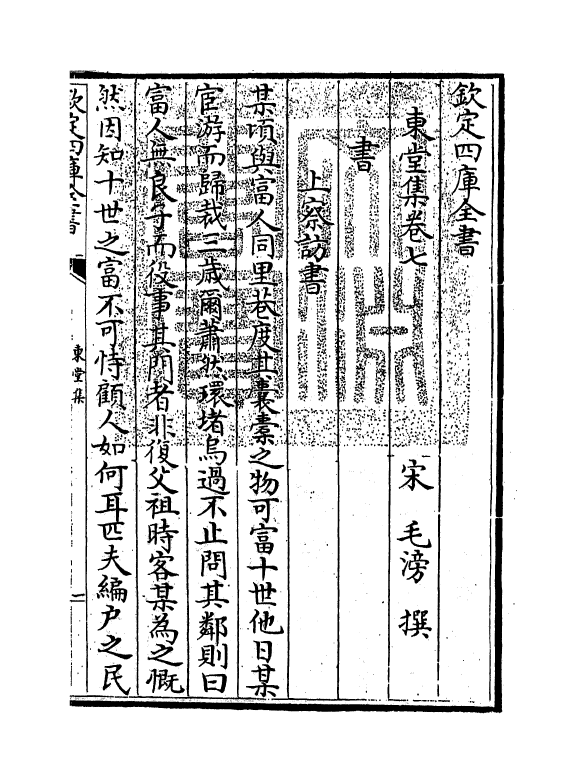 欽定四庫全書
東堂集卷七
宋 毛滂 撰
書
上察訪書
某頃與富人同里巷度其囊橐之物可富十世他日某
宦游而歸裁三歲爾蕭然環堵烏過不止問其鄰則曰
富人無良子而役事其門者非復父祖時客某為之慨
然因知十世之富不可恃顧人如何耳匹夫編户之民
欽定四庫全書
東堂集
一